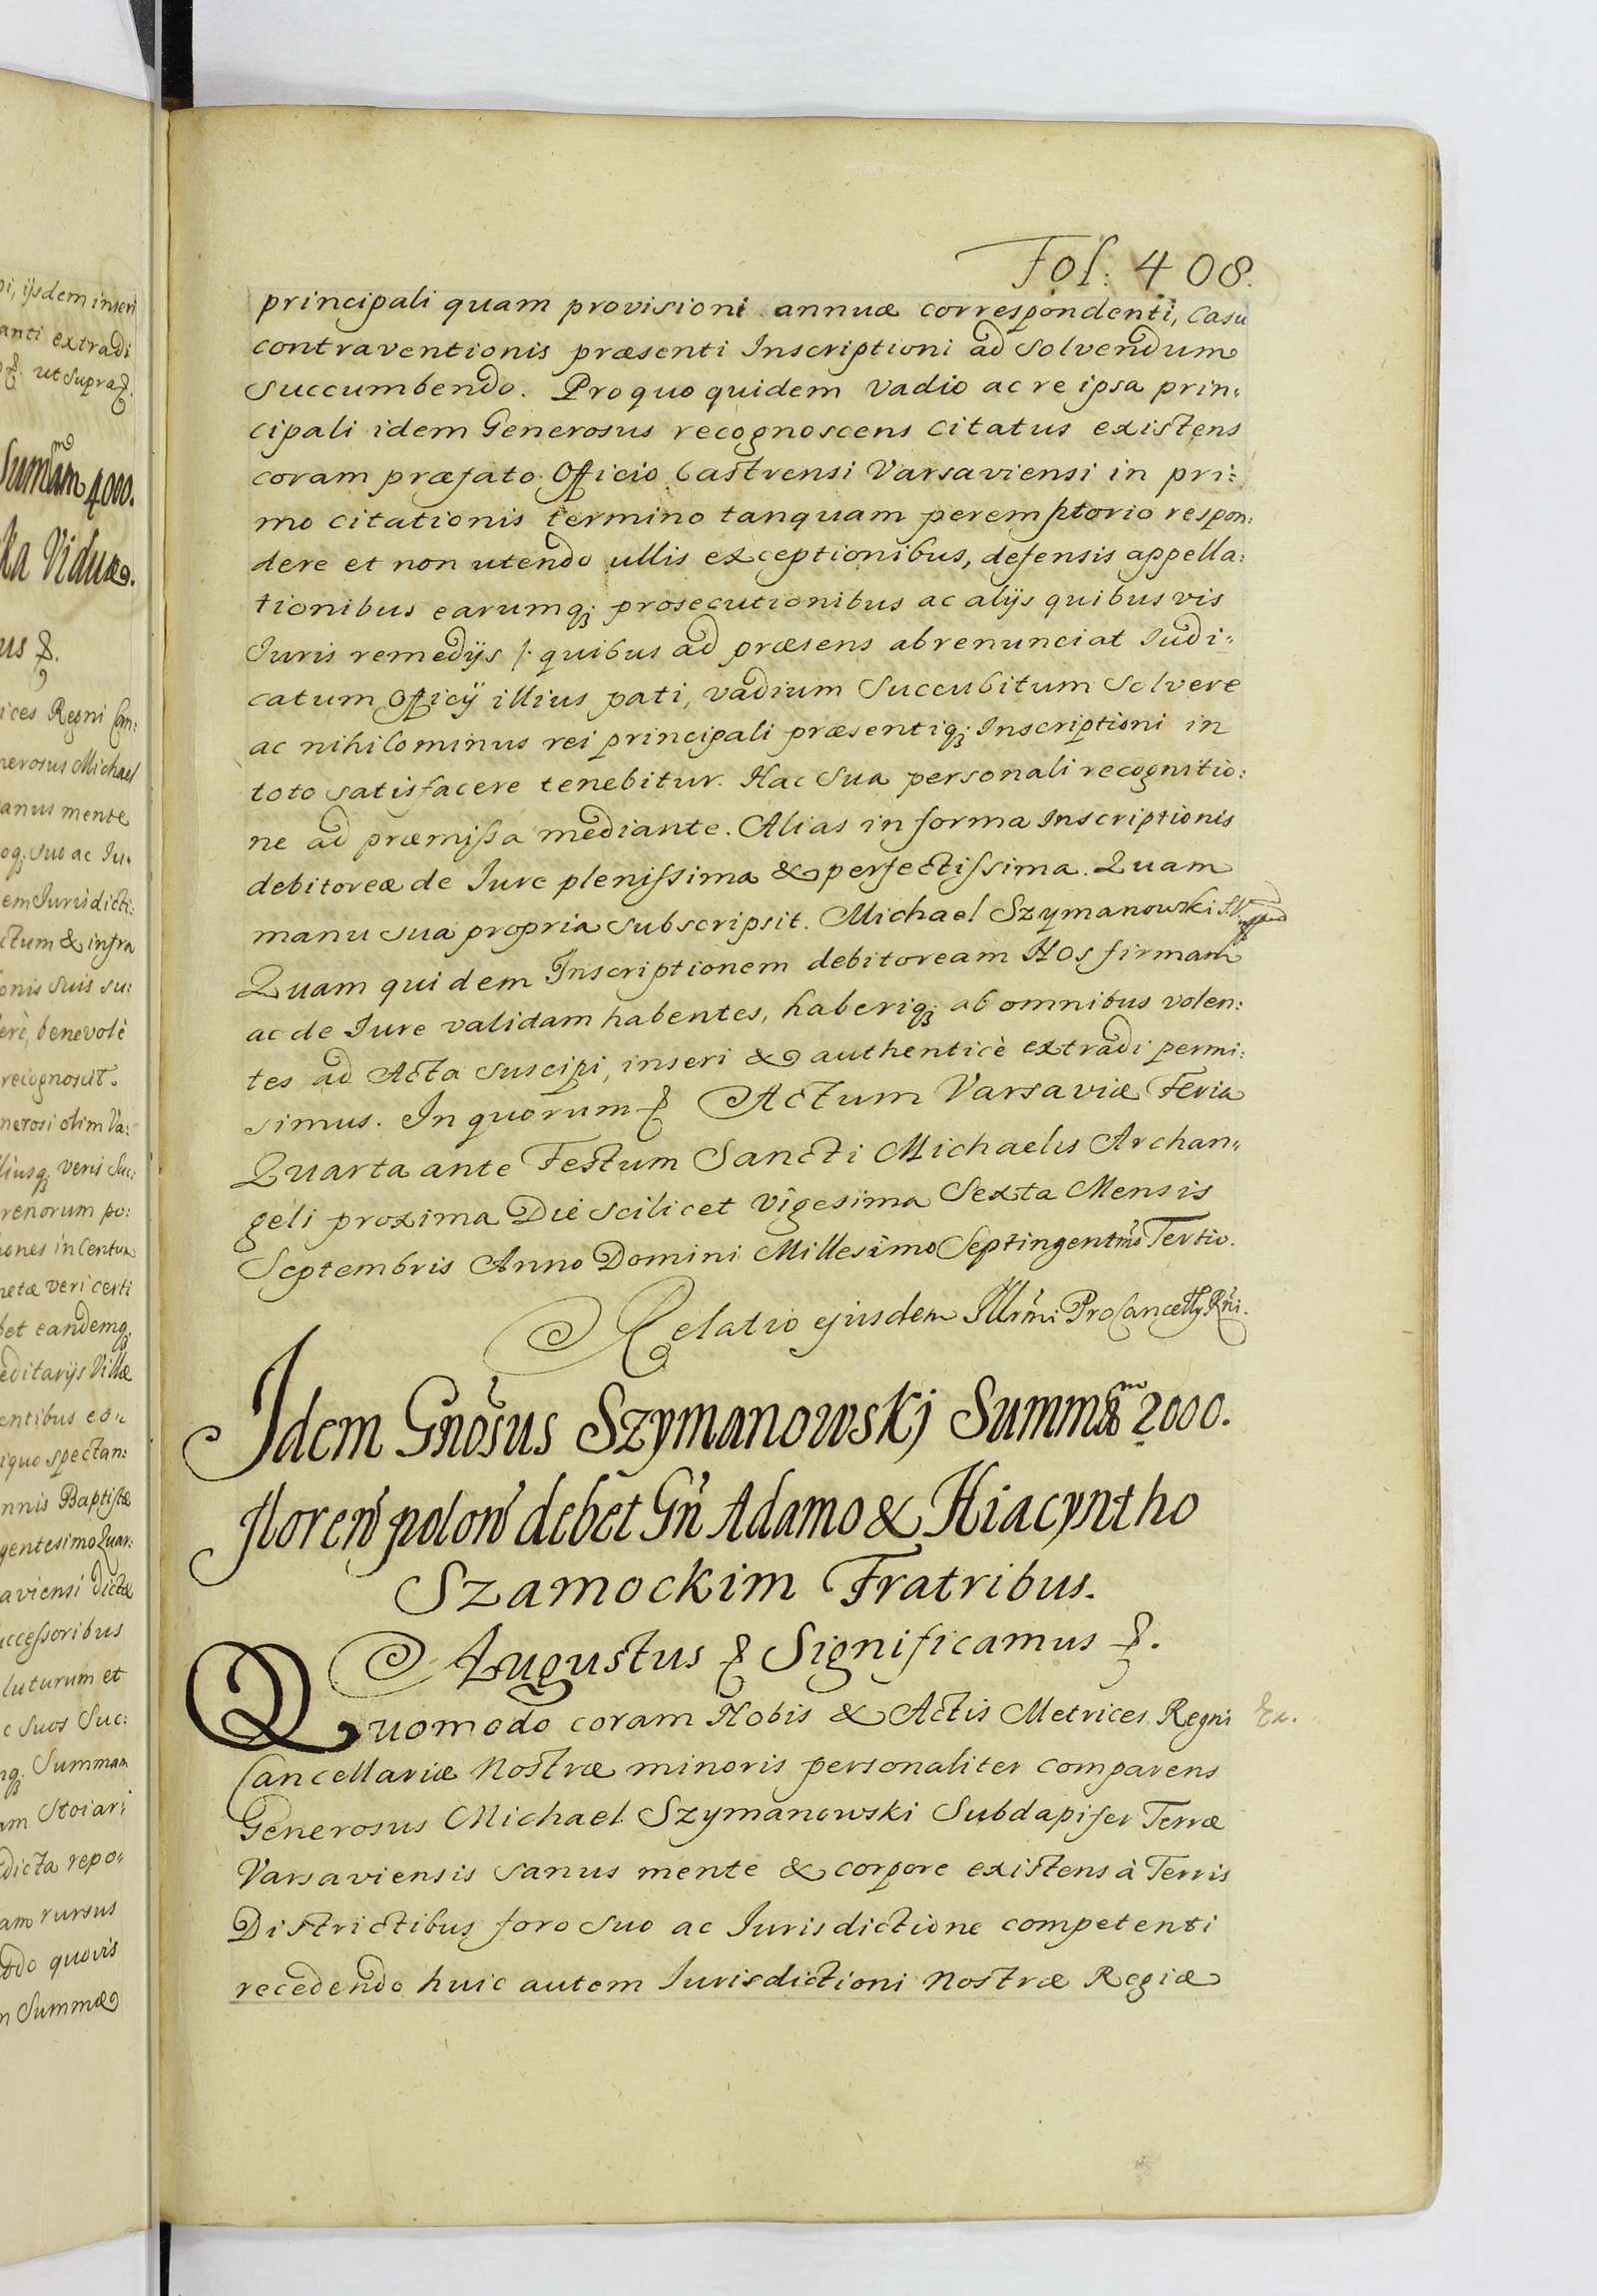 pi, ijsdem inseri
anti extradi
ut supra
Summam 4000.
ka Viduæ.
us
ices Regni Can:
nerosus Michael
anus mente
oq; suo ac Iu:
em Iurisdicti:
ctum & infra
onis suis su:
erè, benevolè
recognoscit.
nerosi olim Va:
liusq; veris Suc:
renorum po:
hones in Centum
netæ veri certi
bet eandemq;
editarijs Villæ
entibus eo:
iquo spectan:
nnis Baptistæ
gentesimo Quar:
aviensi dictæ
uccessoribus
luturum et
c suos Suc:
mq; Summam
am Stoiar:
dicta repo:
am rursus
odo quovis
m Summæ
Fol: 408.
principali quam provisioni annuæ correspondenti, casu
contraventionis præsenti Inscriptioni ad solvendum
succumbendo. Pro quo quidem vadio ac re ipsa prin:
cipali idem Generosus recognoscens citatus existens
coram præfato Officio Castrensi Varsaviensi in pri:
mo citationis termino tanquam peremptorio respon:
dere et non utendo ullis exceptionibus, defensis appella:
tionibus earumq; prosecutionibus ac alijs quibusvis
Iuris remedijs /: quibus ad præsens abrenunciat Iudi:
catum Officij illius pati, vadium succubitum solvere
ac nihilominus rei principali præsentiq; Inscriptioni in
toto satisfacere tenebitur. Hac sua personali recognitio:
ne ad præmissa mediante. Alias in forma Inscriptionis
debitoreæ de Iure plenissima & perfectissima. Quam
manu sua propria subscripsit. Michael Szymanowski S.V.
Quam quidem Inscriptionem debitoream Nos firmam
ac de Iure validam habentes, haberiq; ab omnibus volen:
tes ad Acta suscipi, inseri & authenticè extradi permi:
simus. In quorum Actum Varsaviæ Feria
Quarta ante Festum Sancti Michaelis Archan:
geli proxima Die scilicet Vigesima Sexta Mensis
Septembris Anno Domini Millesimo Septingentmo Tertio.
Relatio ejusdem Illrmi ProCancellrij Rni.
Idem Gnosus Szymanowskj Summam 2000.
floren polon debet Gn Adamo & Hiacyntho
Szamockim Fratribus.
Augustus Significamus
Quomodo coram Nobis & Actis Metrices Regni
Cancellariæ Nostræ minoris personaliter comparens
Generosus Michael Szymanowski Subdapifer Terræ
Varsaviensis sanus mente & corpore existens à Terris
Districtibus foro suo ac Iurisdictione competenti
recedendo huic autem Iurisdictioni Nostræ Regiæ